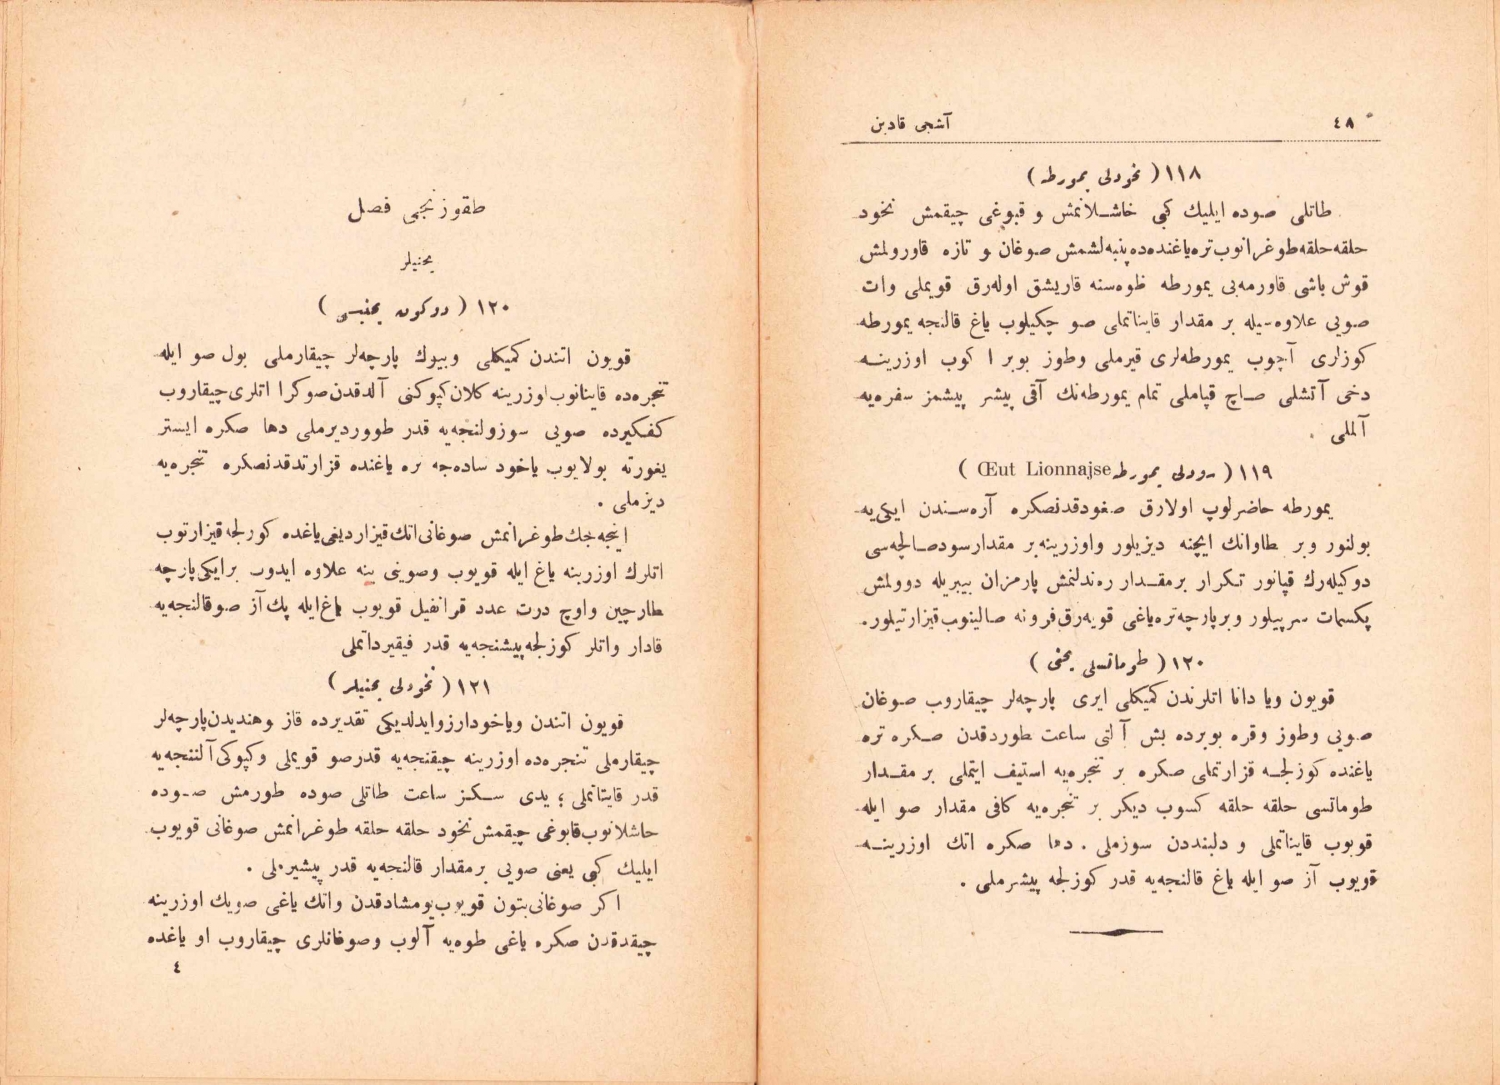 ٤٨
آشجی قادین
١١٨ ( نخودلی یمورطه )
طاتلی صوده ایلیك كبی خاشلانمش و قبوغی چیقمش نخود
حلقه حلقه طوغرانوب تره یاغنده ده پنبه لشمش صوغان و تازه قاورولمش
قوش باشی قاورمه یی یمورطه طوه سنه قاریشق اوله رق قویملی وات
صویی علاوه سیله بر مقدار قایناتملی صو چكیلوب یاغ قالنجه یمورطه
كوزلری آچوب یمورطه لری قیرملی وطوز بوبر ا كوب اوزرینه
دخی آتشلی صاچ قپاملی تمام یمورطه نك آقی پیشر پیشمز سفره یه
آلملی .
١١٩ ( سودلی یمورطه Œut Lionnajse )
یمورطه حاضرلوپ اولارق صغودقدنصكره آره سندن ایكی یه
بولنور وبر طاوانك ایچنه دیزیلور واوزرینه بر مقدار سود صالچه سی
دوكیله رك قپانور تكرار برمقدار رنده لنمش پارمزان بیبریله دوولمش
پكسمات سرپیلور وبر پارچه تره یاغی قویه رق فرونه صالینوب قیزارتیلور.
١٢٠ ( طوماتسلی یخنی )
قویون ویا دانا اتلرندن كمیكلی ایری پارچه لر چیقاروب صوغان
صویی وطوز وقره بوبرده بش آلتی ساعت طوردقدن صكره تره
یاغنده كوزلجه قزارتملی صكره بر تنجره یه استیف ایتملی بر مقدار
طوماتسی حلقه حلقه كسوب دیكر بر تنجره یه كافی مقدار صو ایله
قویوب قایناتملی و دلبنددن سوزملی . دها صكره اتك اوزرینه
قویوب آز صو ایله یاغ قالنجه یه قدر كوزلجه پیشرملی .
طقوزنجی فصل
یخنیلر
١٢٠ ( دوكون یخنیسی )
قویون اتندن كمیكلی وبیوك پارچه لر چیقارملی بول صو ایله
تنجره ده قاینانوب اوزرینه كلان كپوكنی آلدقدن صوكرا اتلری چیقاروب
كفكیرده صویی سوزولنجه یه قدر طووردیرملی دها صكره ایستر
یغورته بولایوب یاخود ساده جه تره یاغنده قزارتدقدنصكره تنجره یه
دیزملی .
اینجه جك طوغرانمش صوغانی اتك قیزاردیغی یاغده كورلجه قیزارتوب
اتلرك اوزرینه یاغ ایله قویوب وصوینی ینه علاوه ایدوب برایكی پارچه
طارچین واوچ درت عدد قرانفیل قویوب یاغ ایله پك آز صوقالنجه یه
قادار واتلر كوزلجه پیشنجه یه قدر فیقیرداتملی
١٢١ ( نخودلی یخنیلر )
قویون اتندن ویاخود ارزو ایدلدیكی تقدیرده قاز وهندیدن پارچه لر
چیقارملی تنجره ده اوزرینه چیقنجه یه قدر صو قویملی وكپوكی آلننجه یه
قدر قایتاتملی ؛ یدی سكز ساعت طاتلی صوده طورمش صوده
حاشلانوب قابوغی چیقمش نخود حلقه حلقه طوغرانمش صوغانی قویوب
ایلیك كبی یعنی صویی برمقدار قالنجه یه قدر پیشیرملی .
اكر صوغانی بتون قویوب یومشادقدن واتك یاغی صویك اوزرینه
چیقدقدن صكره یاغی طوه یه آلوب وصوغانلری چیقاروب او یاغده
٤